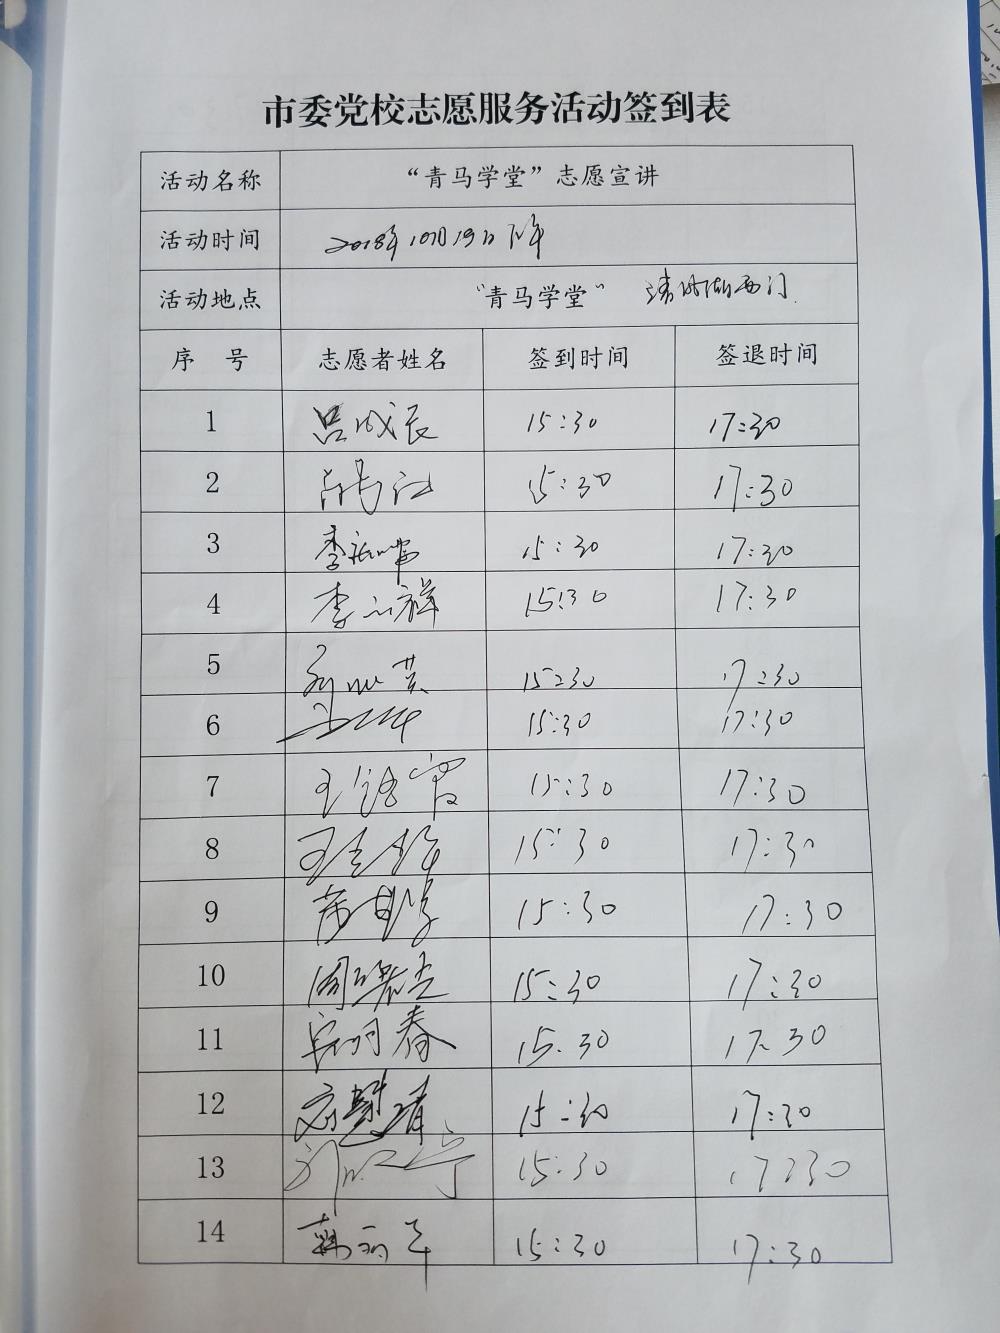 市委党校志愿服务活动签到表
活动名称 “青马学堂”志愿宣讲
活动时间 2018年10月19日下午
活动地点 “青马学堂” 西门
序 号 志愿者姓名 签到时间 签退时间
1 吕成辰 15:30 17:30
2 15:30 17:30
3 李 15:30 17:30
4 李 祥 15:30 17:30
5 15:30 17:30
6 15:30 17:30
7 王 霞 15:30 17:30
8 王 15:30 17:30
9 15:30 17:30
10 周 15:30 17:30
11 春 15:30 17:30
12 慧靖 15:30 17:30
13 15:30 17:30
14 韩 军 15:30 17:30